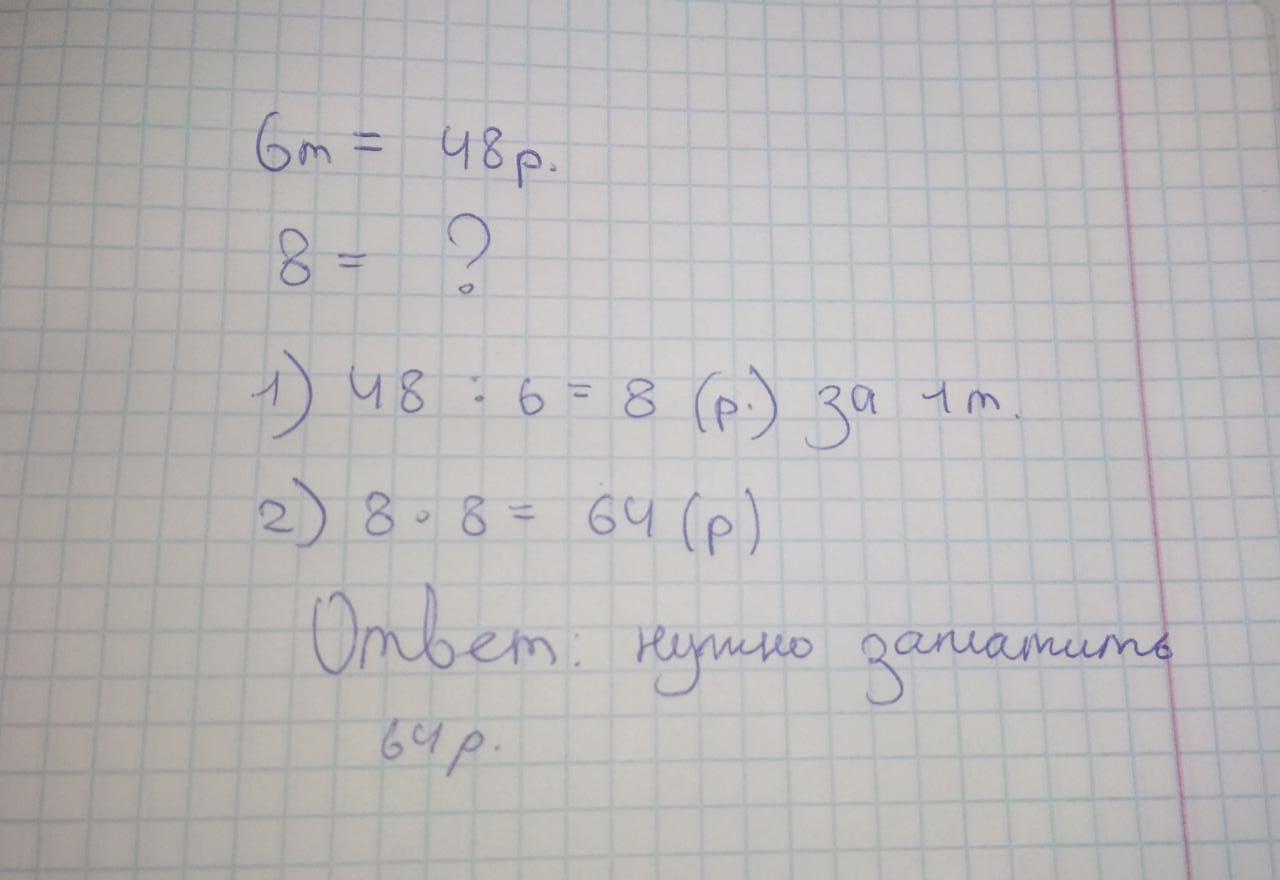 6т = 48р.
8 = ?
1) 48 : 6 = 8 (р.) за 1т.
2) 8 · 8 = 64 (р)
Ответ: нужно заплатить
64р.